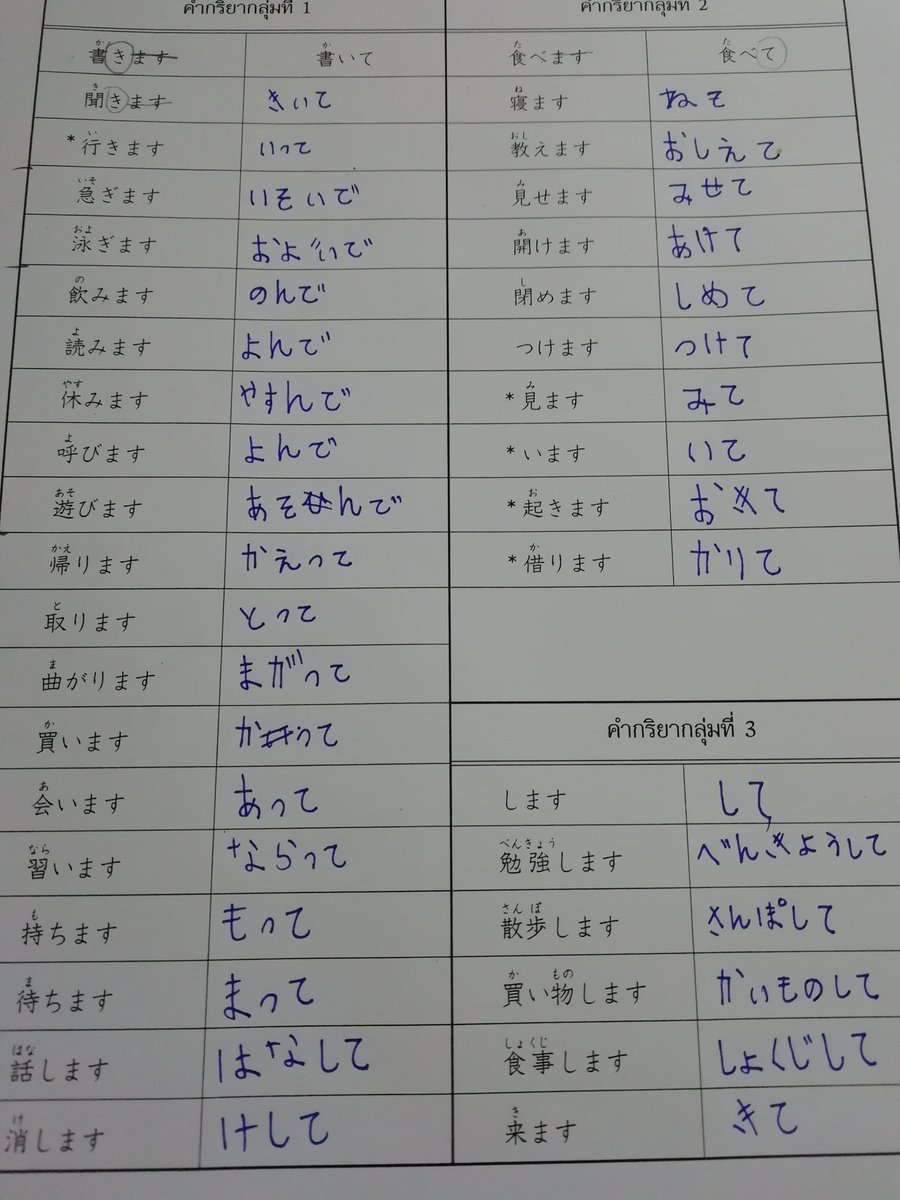 คำกริยากลุ่มที่ 1
か か
書きます 書いて
き
聞きます きいて
い
*行きます いって
いそ
急ぎます いそいで
およ
泳ぎます およいで
の
飲みます のんで
よ
読みます よんで
やす
休みます やすんで
よ
呼びます よんで
あそ
遊びます あそんで
かえ
帰ります かえって
と
取ります とって
ま
曲がります まがって
か
買います かって
あ
会います あって
なら
習います ならって
も
持ちます もって
ま
待ちます まって
はな
話します はなして
け
消します けして
คำกริยากลุ่มที่ 2
た た
食べます 食べて
ね
寝ます ねて
おし
教えます おしえて
み
見せます みせて
あ
開けます あけて
し
閉めます しめて
つけます つけて
み
*見ます みて
*います いて
お
*起きます おきて
か
*借ります かりて
คำกริยากลุ่มที่ 3
します して
べんきょう
勉強します べんきょうして
さん ぽ
散歩します さんぽして
か もの
買い物します かいものして
しょくじ
食事します しょくじして
き
来ます きて